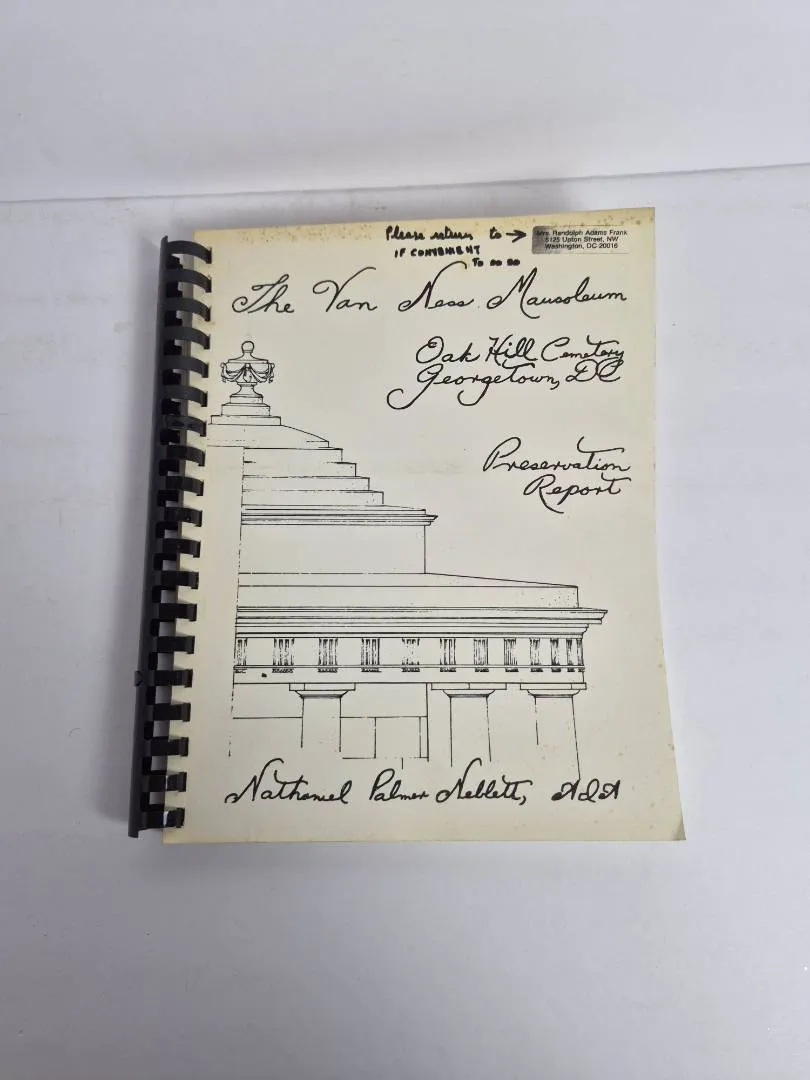 Please return to →
IF CONVENIENT
TO DO SO
Mrs. Randolph Adams Frank
5125 Upton Street, NW
Washington, DC 20016
The Van Ness Mausoleum
Oak Hill Cemetery
Georgetown, DC
Preservation
Report
Nathaniel Palmer Neblett, AIA